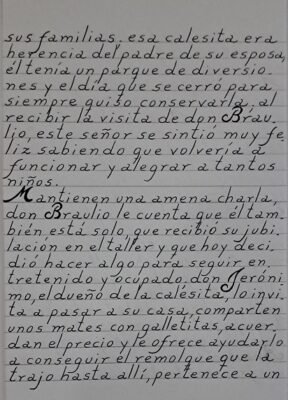 sus familias. esa calesita era
herencia del padre de su esposa,
él tenía un parque de diversio-
nes y el día que se cerró para
siempre quiso conservarla, al
recibir la visita de don Brau-
lio, este señor se sintió muy fe-
liz sabiendo que volvería a
funcionar y alegrar a tantos
niños.
Mantienen una amena charla,
don Braulio le cuenta que él tam-
bién está solo, que recibió su jubi-
lación en el taller y que hoy deci-
dió hacer algo para seguir en-
tretenido y ocupado. don Jeróni-
mo, el dueño de la calesita, lo invi-
ta a pasar a su casa, comparten
unos mates con galletitas, acuer-
dan el precio y le ofrece ayudarlo
a conseguir el remolque que la
trajo hasta allí, pertenece a un